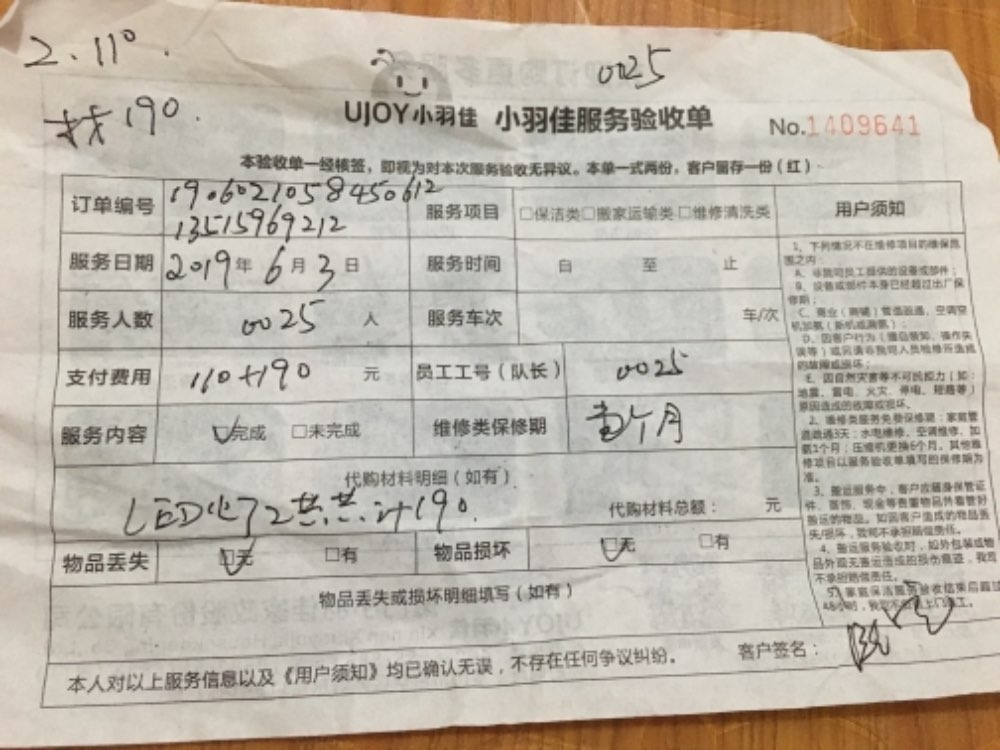 2.110.
0025
找190.
UJOY小羽佳 小羽佳服务验收单
No.1409641
本验收单一经核签，即视为对本次服务验收无异议。本单一式两份，客户留存一份（红）
订单编号 1906021058450612
13515969212
服务项目 □保洁类□搬家运输类□维修清洗类
用户须知
服务日期 2019年6月3日
服务时间 自 至 止
服务人数 0025 人
服务车次 车/次
支付费用 110+190 元
员工工号（队长） 0025
服务内容 ☑完成 □未完成
维修类保修期 壹个月
代购材料明细（如有）
LED 2 共计190.
代购材料总额： 元
物品丢失 ☑无 □有
物品损坏 ☑无 □有
物品丢失或损坏明细填写（如有）
本人对以上服务信息以及《用户须知》均已确认无误，不存在任何争议纠纷。
客户签名：
1、下列情况不在维修项目的维保范
围之内：
A、非我司员工提供的设备或部件；
B、设备或部件本身已经超过出厂保
修期；
C、商业（商铺）管道疏通、空调空
D、因客户行为（擅自装卸、操作失
误等）或另请非我司人员检修所造成
的故障或损坏；
E、因自然灾害等不可抗力（如：
地震、雷电、火灾、停电、短路等）
原因造成的故障或损坏。
2、维修类服务免费保修期：家庭管
道疏通3天；水电维修、空调维修、加
氨1个月；压缩机更换6个月。其他维
修项目以服务验收单填写的保修期为
准。
3、搬运服务中，客户应随身保管证
件、首饰、现金等贵重物品并看管好
搬运的物品。如因客户造成的物品丢
失/损坏，我司不承担赔偿责任。
4、搬运服务验收时，如外包装或物
品外观无搬运造成的损伤痕迹，我司
不承担赔偿责任。
5、家庭保洁服务验收结束后超过